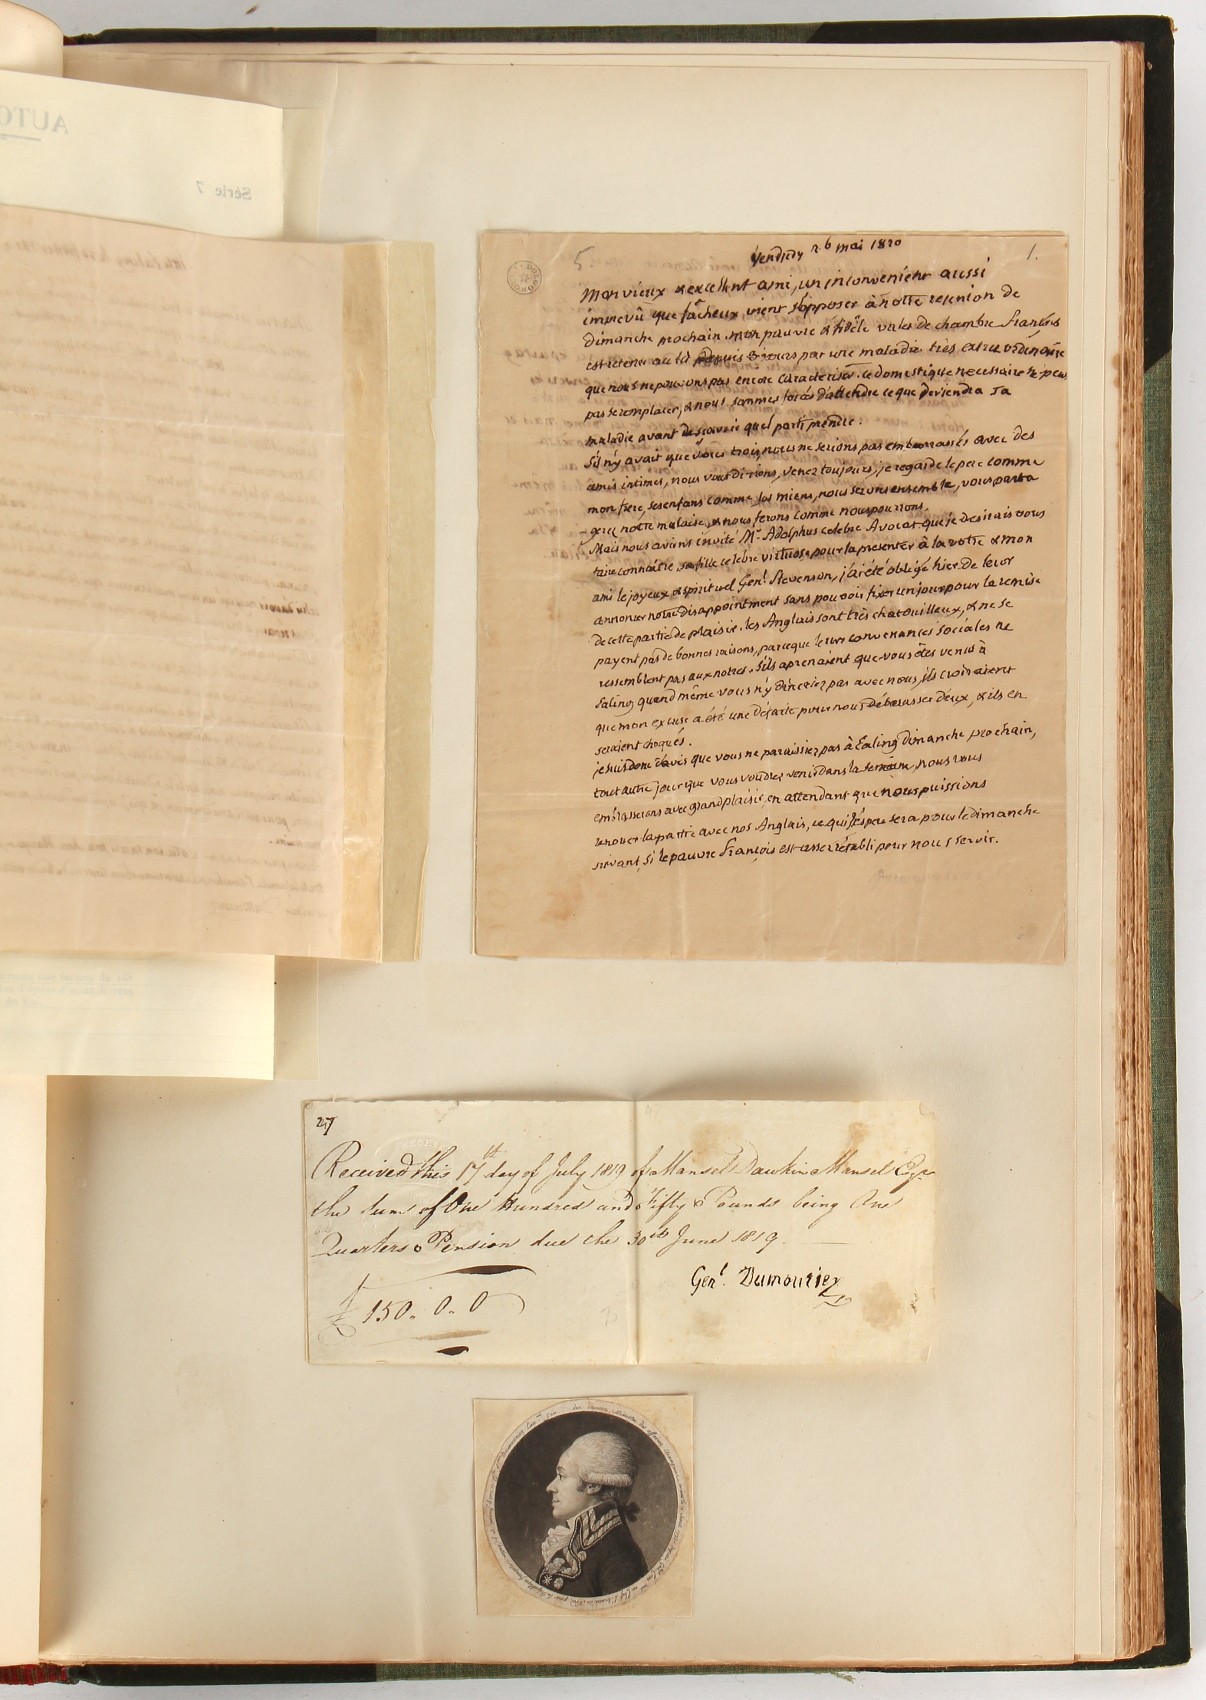 AUTO
Série 7
5
1.
Vendredy 26 mai 1820
Mon vieux & excellent ami, un inconvenient aussi
imprevû que fâcheux vient s'opposer à notre reunion de
dimanche prochain. mon pauvre & fidèle valet de chambre françois
est retenu au lit depuis jours par une maladie très extraordinaire
que nous ne pouvons pas encore caracteriser. ce domestique necessaire ne peut
pas se remplacer, & nous sommes forcés d'attendre ce que deviendra sa
maladie avant de scavoir quel parti prendre.
S'il n'y avait que vous trois, nous ne serions pas embarrassés avec des
amis intimes, nous vous dirions, venez toujours, je regarde le pere comme
mon frere, ses enfans comme les miens, nous serons ensemble, vous parta
gerez notre malaise, & nous ferons comme nous pourrons.
Mais nous avions invité Mr. Adolphus celebre Avocat que je desirais vous
faire connaître, sa fille celebre virtuose pour la presenter à la votre & mon
ami le joyeux & spirituel Genl. Stevenson, j'ai été obligé hier de leur
annoncer notre disappointment sans pouvoir fixer un jour pour la remise
de cette partie de plaisir. les Anglais sont très chatouilleux, & ne se
payent pas de bonnes raisons, parceque leurs convenances sociales ne
ressemblent pas aux notres. s'ils aprenaient que vous êtes venus à
Ealing quand même vous n'y dineriez pas avec nous, ils croiraient
que mon excuse a été une defaite pour nous débarasser d'eux, & ils en
seraient choqués.
je suis donc d'avis que vous ne paraissiez pas à Ealing dimanche prochain,
tout autre jour que vous voudrez venir dans la semaine, nous vous
embrasserons avec grand plaisir, en attendant que nous puissions
renouer la partie avec nos Anglais, ce qui j'éspere sera pour le dimanche
suivant, si le pauvre françois est assez rétabli pour nous servir.
27
Received this 17th day of July 1819 of Mansel Dawkin Mansel Esqr.
the sum of One Hundred and Fifty Pounds being One
Quarters Pension due the 30th June 1819.
Genl. Dumouriez
£ 150. 0. 0